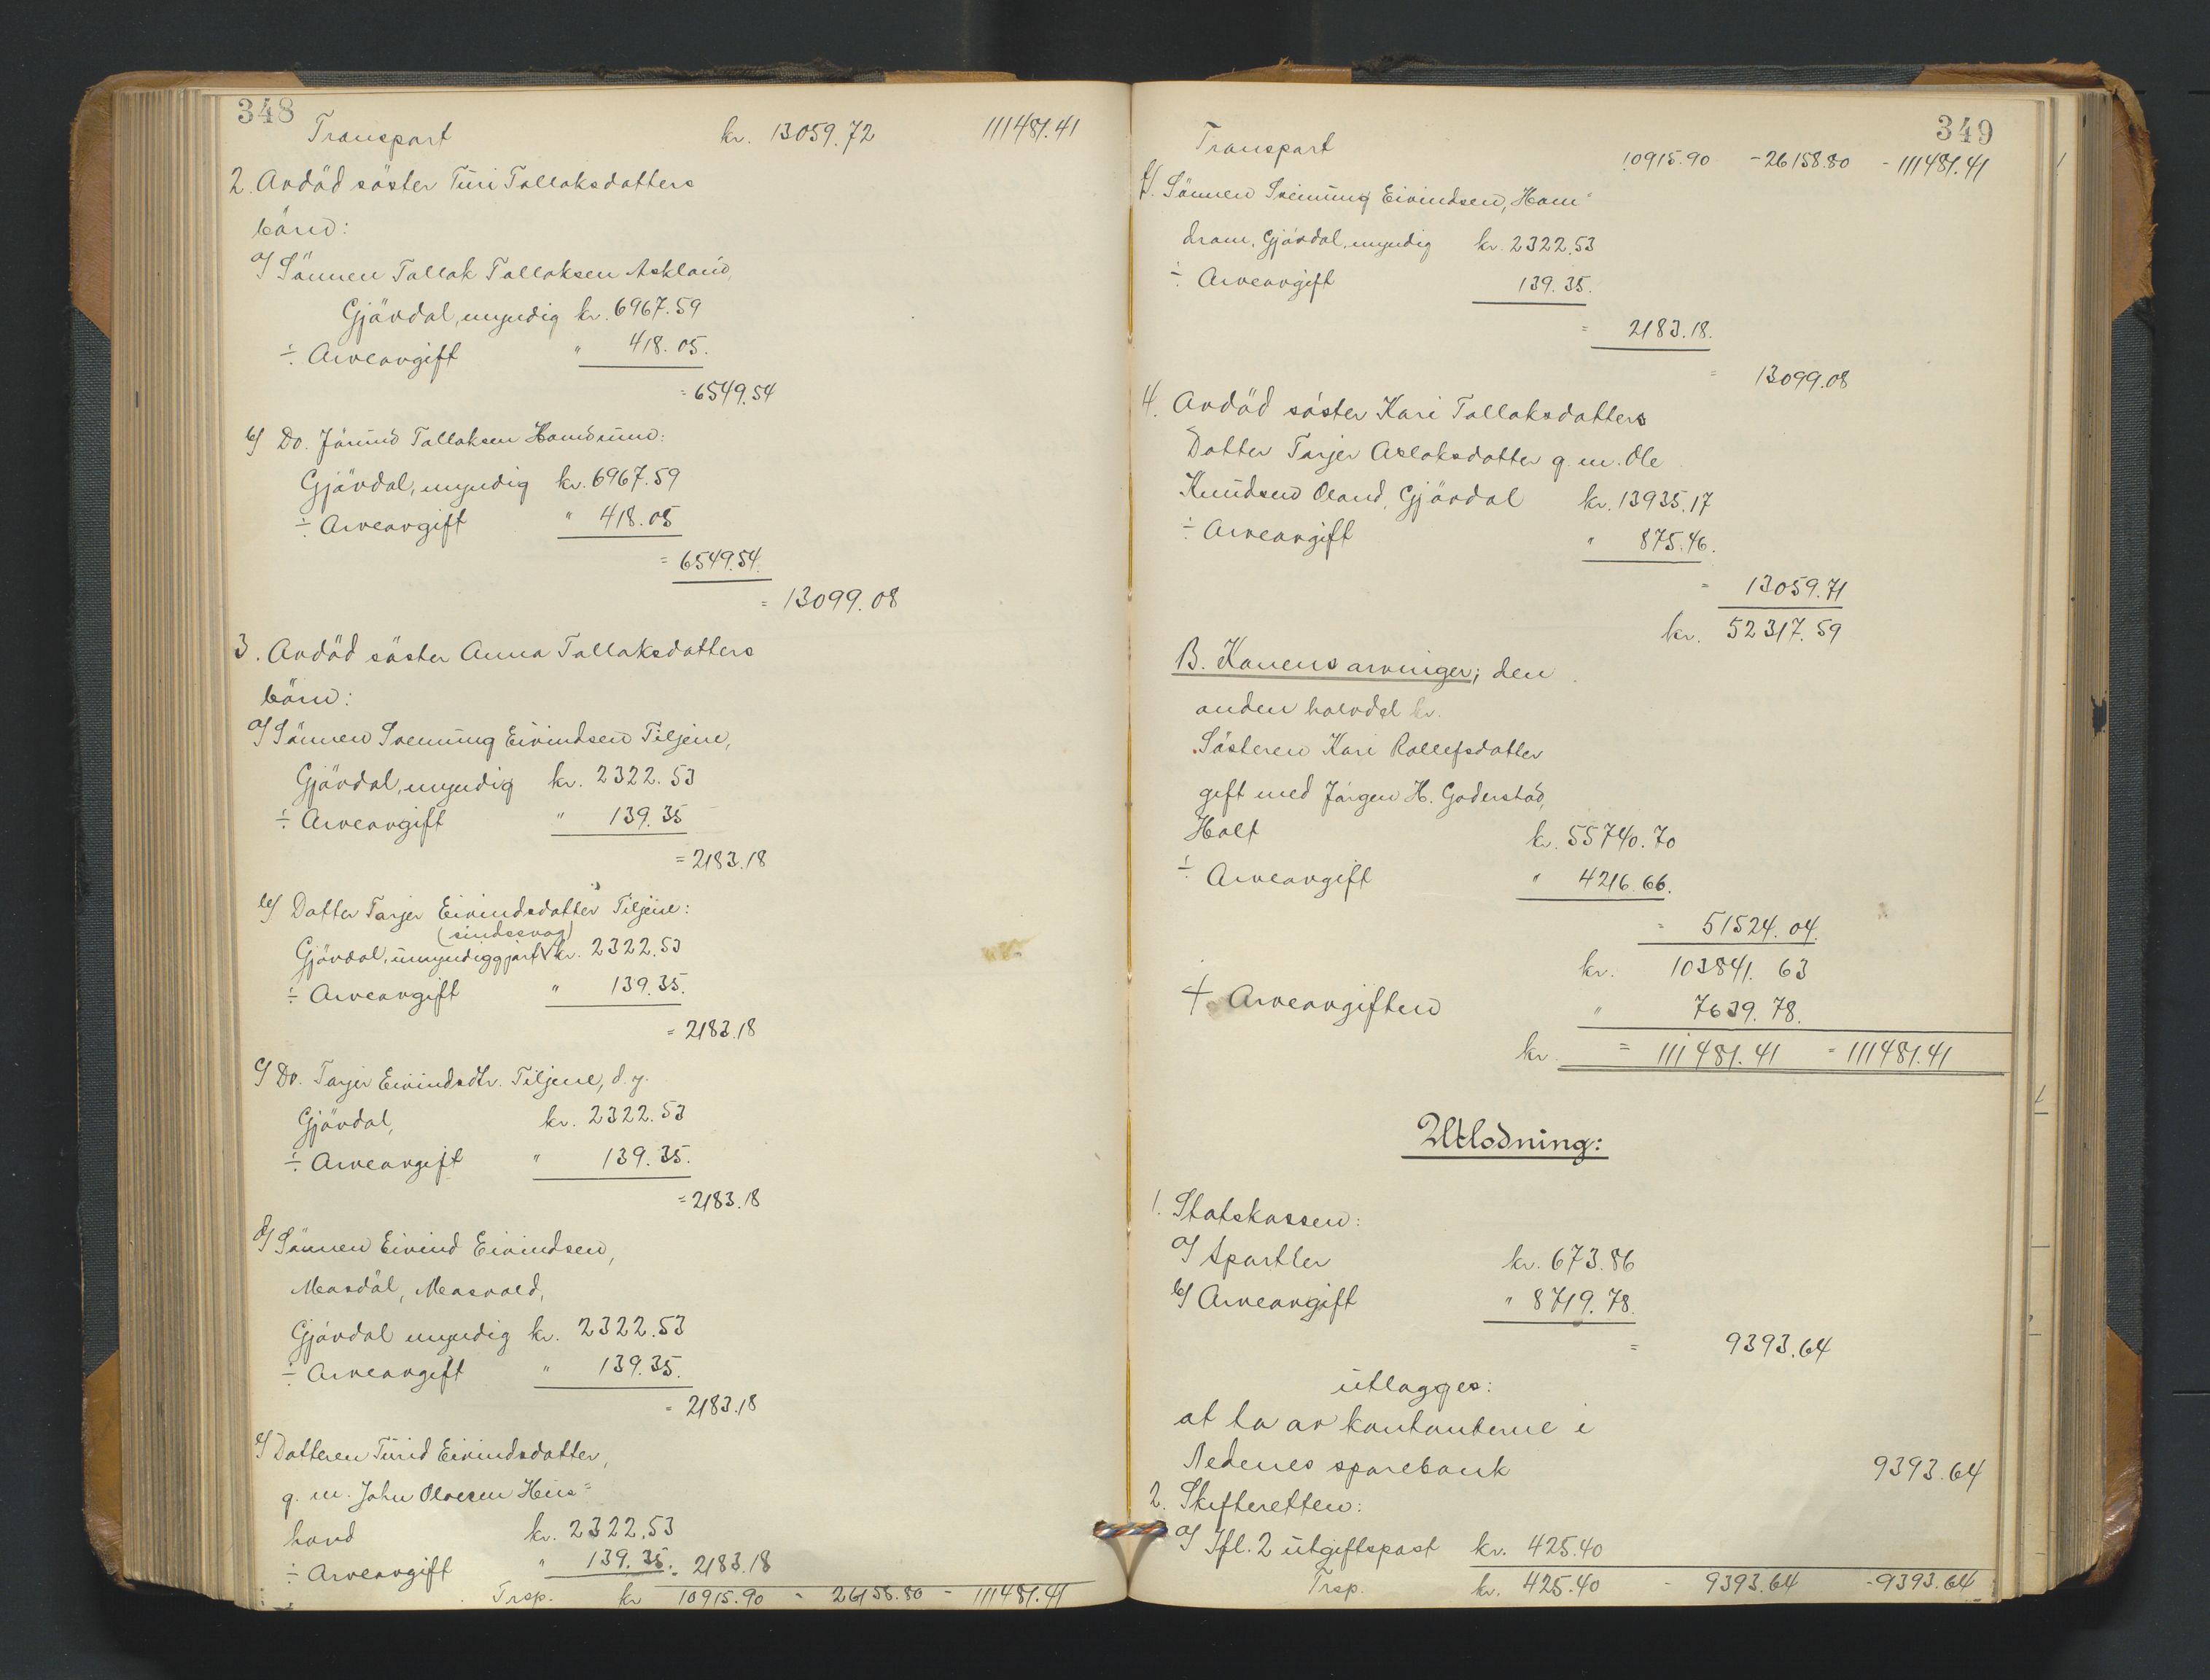 348
Transport kr. 13059.72 111481.41
2. Avdöd söster Turi Tallaksdatters
börn:
a/ Sönnen Tallak Tallaksen Askland,
Gjövdal, myndig kr. 6967.59
÷ Arveavgift " 418.05.
= 6549.54
b/ Do. Jörund Tallaksen
Gjövdal, myndig kr. 6967.59
÷ Arveavgift " 418.05
= 6549.54.
= 13099.08
3. Avdöd söster Anna Tallaksdatters
börn:
a/ Sönnen Svenung Eivindsen Tiljene,
Gjövdal, myndig kr. 2322.53
÷ Arveavgift " 139.35
= 2183.18
b/ Datter Tarjer Eivindsdatter Tiljene:
(sindssvag)
Gjövdal, umyndiggjort kr. 2322.53
÷ Arveavgift " 139.35.
= 2183.18
c/ Do. Tarjer Eivindsdtr. Tiljene, d.y.
Gjövdal, kr. 2322.53
÷ Arveavgift " 139.35.
= 2183.18
d/ Sönnen Eivind Eivindsen,
Gjövdal myndig kr. 2322.53
÷ Arveavgift " 139.35.
= 2183.18
e/ Datteren Turid Eivindsdatter,
g. m. John Olovsen Hus=
hovd kr. 2322.53
÷ Arveavgift " 139.35. = 2183.18
Trsp. kr 10915.90 - 26158.80 - 111481.41
349
Transport 10915.90 - 26158.80 - 111481.41
f/. Sönnen Svenung Eivindsen, Ham=
dram, Gjövdal, myndig kr. 2322.53
÷ Arveavgift 139.35.
= 2183.18.
= 13099.08
4. Avdöd söster Kari Tallaksdatters
Datter Tarjer Aslaksdatter g. m. Ole
Knudsen Oland, Gjövdal kr. 13935.17
÷ Arveavgift " 875.46.
= 13059.71
kr. 52317.59
B. Konens arvinger; den
anden halvdel kr.
Søsteren Kari Rollefsdatter
gift med Jörgen H. Goderstad,
Holt kr. 55740.70
÷ Arveavgift " 4216.66.
= 51524.04.
kr. 103841.63
+ Arveavgiften " 7639.78.
kr. = 111481.41 = 111481.41
Utlodning:
1. Statskassen:
a/ Sportler kr. 673.86
b/ Arveavgift " 8719.78.
= 9393.64
utlægges:
at ta av kontanterne i
Nedenes sparebank 9393.64
2. Skifteretten:
a/ Ifl. 2 utgiftspost kr. 425.40
Trsp. kr. 425.40 - 9393.64 - 9393.64